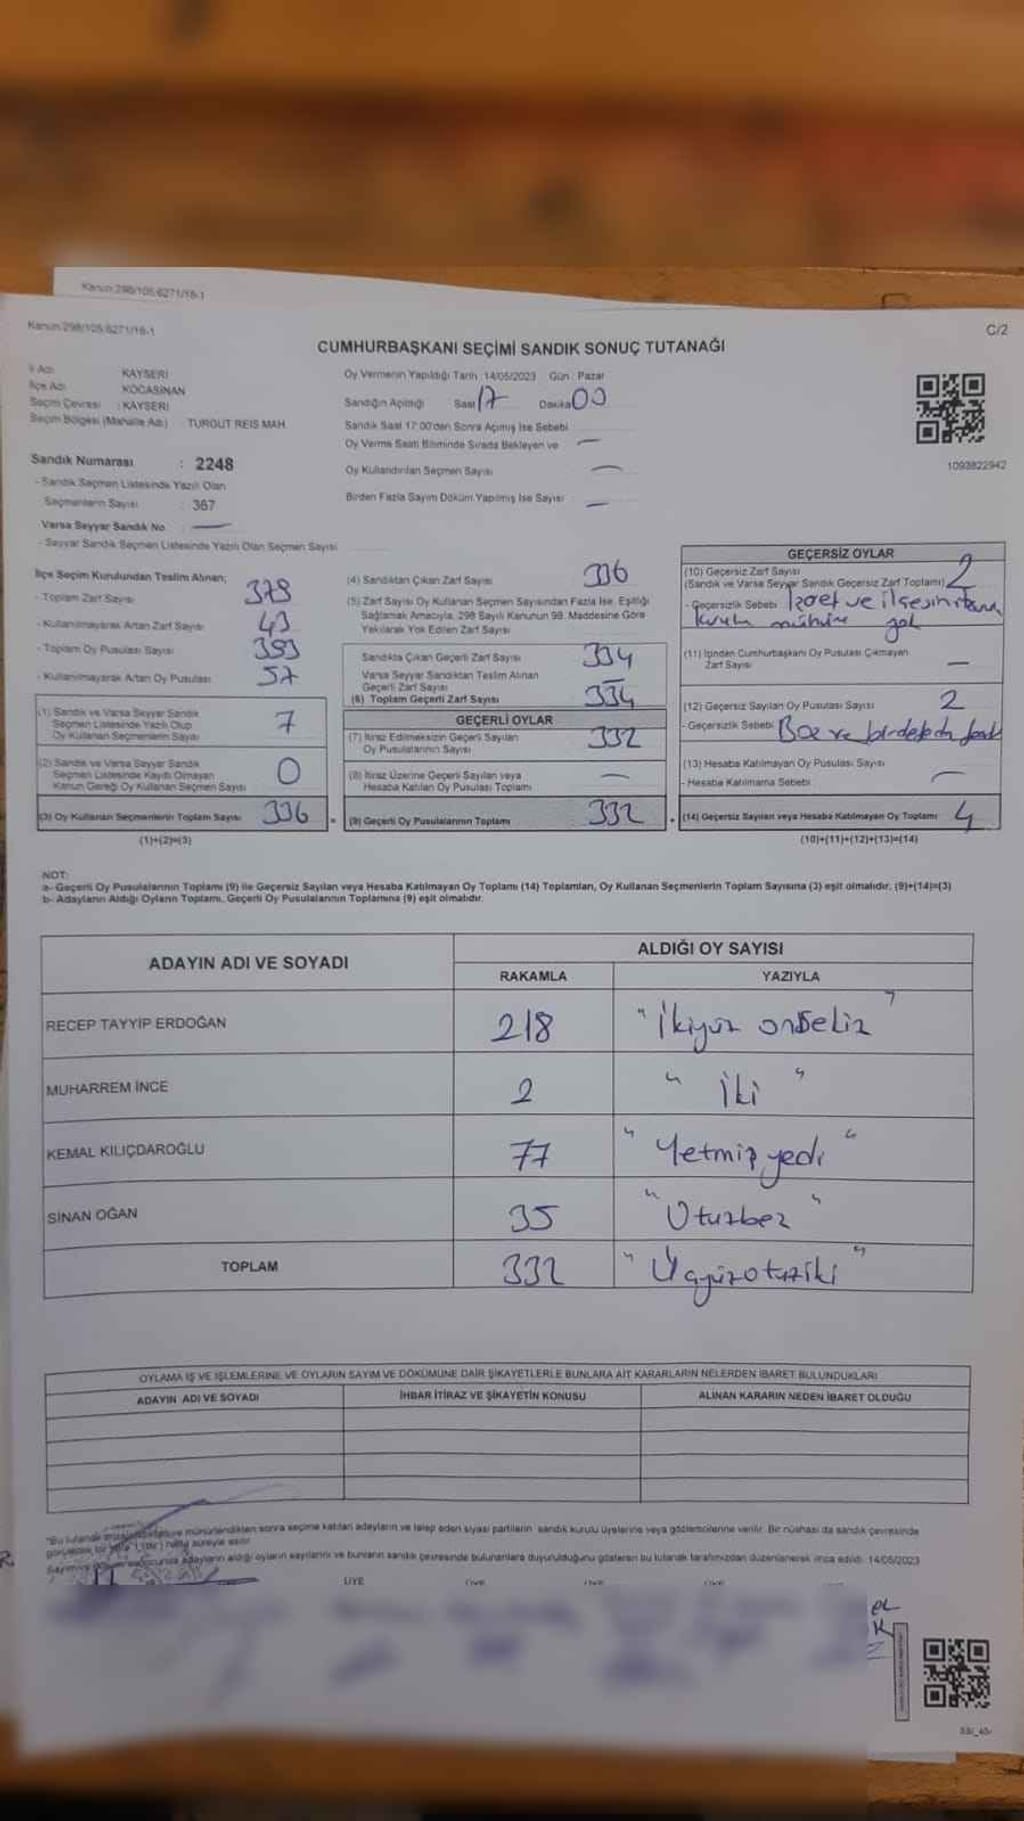 Kanun:298/105,6271/16-1
Kanun:298/105,6271/16-1
C/2
CUMHURBAŞKANI SEÇİMİ SANDIK SONUÇ TUTANAĞI
İl Adı KAYSERİ
İlçe Adı KOCASİNAN
Seçim Çevresi : KAYSERİ
Seçim Bölgesi (Mahalle Adı) TURGUT REIS MAH.
Sandık Numarası : 2248
- Sandık Seçmen Listesinde Yazılı Olan
Seçmenlerin Sayısı : 367
Varsa Seyyar Sandık No
- Seyyar Sandık Seçmen Listesinde Yazılı Olan Seçmen Sayısı
Oy Vermenin Yapıldığı Tarih : 14/05/2023 Gün : Pazar
Sandığın Açıldığı Saat 17 Dakika 00
Sandık Saat 17:00'den Sonra Açılmış İse Sebebi
Oy Verme Saati Bitiminde Sırada Bekleyen ve
Oy Kullandırılan Seçmen Sayısı
Birden Fazla Sayım Döküm Yapılmış İse Sayısı
1093822942
İlçe Seçim Kurulundan Teslim Alınan;
- Toplam Zarf Sayısı 379
- Kullanılmayarak Artan Zarf Sayısı 43
- Toplam Oy Pusulası Sayısı 393
- Kullanılmayarak Artan Oy Pusulası 57
(1) Sandık ve Varsa Seyyar Sandık
Seçmen Listesinde Yazılı Olup
Oy Kullanan Seçmenlerin Sayısı 7
(2) Sandık ve Varsa Seyyar Sandık
Seçmen Listesinde Kaydı Olmayan
Kanun Gereği Oy Kullanan Seçmen Sayısı 0
(3) Oy Kullanan Seçmenlerin Toplam Sayısı 336
(1)+(2)=(3)
(4) Sandıktan Çıkan Zarf Sayısı 336
(5) Zarf Sayısı Oy Kullanan Seçmen Sayısından Fazla İse, Eşitliği
Sağlamak Amacıyla, 298 Sayılı Kanunun 98. Maddesine Göre
Yakılarak Yok Edilen Zarf Sayısı
Sandıkta Çıkan Geçerli Zarf Sayısı 334
Varsa Seyyar Sandıktan Teslim Alınan
Geçerli Zarf Sayısı
(6) Toplam Geçerli Zarf Sayısı 334
GEÇERLİ OYLAR
(7) İtiraz Edilmeksizin Geçerli Sayılan
Oy Pusulalarının Sayısı 332
(8) İtiraz Üzerine Geçerli Sayılan veya
Hesaba Katılan Oy Pusulası Toplamı
(9) Geçerli Oy Pusulalarının Toplamı 332
GEÇERSİZ OYLAR
(10) Geçersiz Zarf Sayısı
(Sandık ve Varsa Seyyar Sandık Geçersiz Zarf Toplamı) 2
- Geçersizlik Sebebi ve
(11) İçinden Cumhurbaşkanı Oy Pusulası Çıkmayan
Zarf Sayısı
(12) Geçersiz Sayılan Oy Pusulası Sayısı 2
- Geçersizlik Sebebi ve
(13) Hesaba Katılmayan Oy Pusulası Sayısı
- Hesaba Katılmama Sebebi
(14) Geçersiz Sayılan veya Hesaba Katılmayan Oy Toplamı 4
(10)+(11)+(12)+(13)=(14)
NOT:
a- Geçerli Oy Pusulalarının Toplamı (9) ile Geçersiz Sayılan veya Hesaba Katılmayan Oy Toplamı (14) Toplamları, Oy Kullanan Seçmenlerin Toplam Sayısına (3) eşit olmalıdır. (9)+(14)=(3)
b- Adayların Aldığı Oyların Toplamı, Geçerli Oy Pusulalarının Toplamına (9) eşit olmalıdır.
ADAYIN ADI VE SOYADI ALDIĞI OY SAYISI
RAKAMLA YAZIYLA
RECEP TAYYİP ERDOĞAN 218 "İkiyüz onseliz"
MUHARREM İNCE 2 "İki"
KEMAL KILIÇDAROĞLU 77 "Yetmiş yedi"
SİNAN OĞAN 35 "Otuzbeş"
TOPLAM 332 "Üçyüzotuziki"
OYLAMA İŞ VE İŞLEMLERİNE VE OYLARIN SAYIM VE DÖKÜMÜNE DAİR ŞİKAYETLERLE BUNLARA AİT KARARLARIN NELERDEN İBARET BULUNDUKLARI
ADAYIN ADI VE SOYADI İHBAR İTİRAZ VE ŞİKAYETİN KONUSU ALINAN KARARIN NEDEN İBARET OLDUĞU
mühürlendikten sonra seçime katılan adayların ve talep eden siyasi partilerin sandık kurulu üyelerine veya gözlemcilerine verilir. Bir nüshası da sandık çevresinde
adayların aldığı oyların sayılarını ve bunların sandık çevresinde bulunanlara duyurulduğunu gösteren bu tutanak tarafımızdan düzenlenerek imza edildi. 14/05/2023
ÜYE